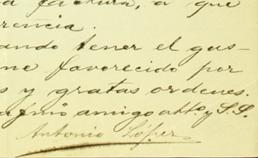 factura, a que
rencia.
ando tener el gus-
me favorecido por
s y gratas ordenes.
afmo amigo atto. y S.S.
Antonio López